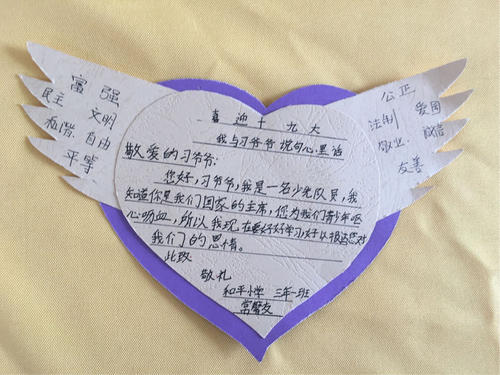 富强
民主
文明
和谐
自由
平等
公正
法制
爱国
敬业
诚信
友善
喜迎十九大
我与习爷爷说句心里话
敬爱的习爷爷:
您好,习爷爷,我是一名少先队员,我
知道你是我们国家的主席,您为我们青少年呕
心呖血,所以我现在要好好学习,好以报达您对
我们的恩情。
此致
敬礼
和平小学 三年一班
常馨友